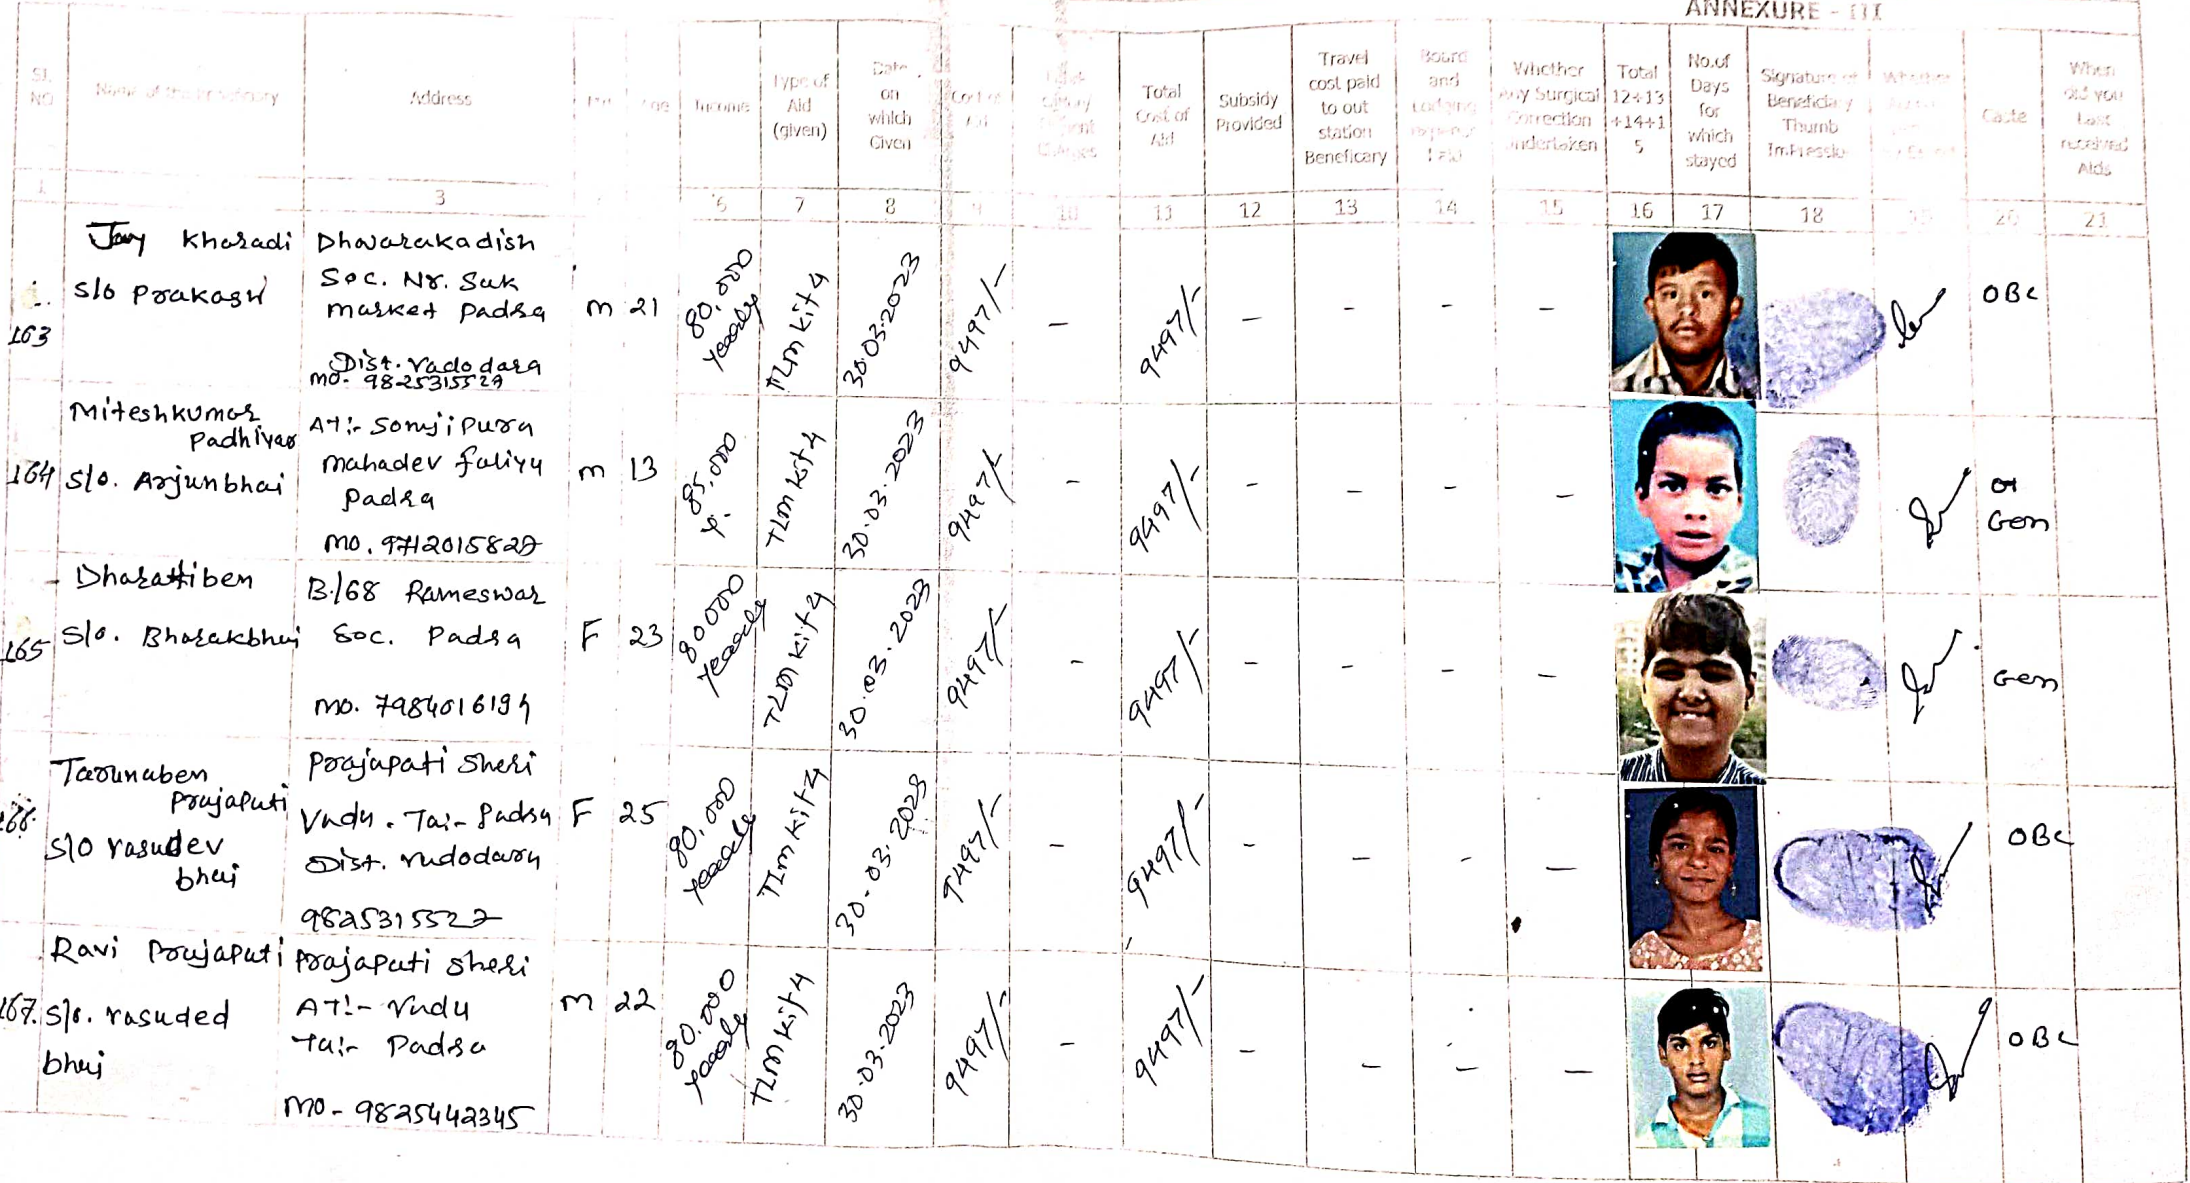 ANNEXURE - III
Sl. NO
Name of the Beneficiary
Address
Income
Type of Aid (given)
Date on which Given
Cost of Aid
Total Cost of Aid
Subsidy Provided
Travel cost paid to out station Beneficary
Board and Lodging expenses Paid
Whether any Surgical Correction undertaken
Total 12+13 +14+1 5
No.of Days for which stayed
Signature of Beneficiary Thumb Impression
Whether
Caste
When did you Last received Aids
1 3 6 7 8 9 10 11 12 13 14 15 16 17 18 19 20 21
163
Jay Kharadi
S/o Prakash
Dhavarakadish
Soc. Nr. Sak
market Padra
Dist. Vadodara
mo. 9825315527
m 21 80,000 yearly TLM kit 4 30.03.2023 9497/- - 9497/- - - - - OBC
164
Miteshkumar
Padhiyar
S/o. Arjunbhai
AT:- Somjipura
mahadev faliyu
Padra
mo. 9712015827
m 13 85,000 y. TLM kit 4 30.03.2023 9497/- - 9497/- - - - - OT Gen
165
Dharattiben
S/o. Bharakbhai
B/68 Rameswar
Soc. Padra
mo. 7984016194
F 23 80000 yearly TLM kit 4 30.03.2023 9497/- - 9497/- - - - - Gen
166.
Tarunaben
Prajapati
S/o vasudev
bhai
Prajapati Sheri
Vadu. Ta:- Padra
Dist. Vadodara
9825315527
F 25 80,000 yearly TLM kit 4 30-03-2023 9497/- - 9497/- - - - - OBC
167.
Ravi Prajapati
S/o. vasuded
bhai
Prajapati Sheri
AT:- Vadu
Ta:- Padra
mo - 9825442345
m 22 80,000 yearly TLM kit 4 30.03.2023 9497/- - 9497/- - - - - OBC